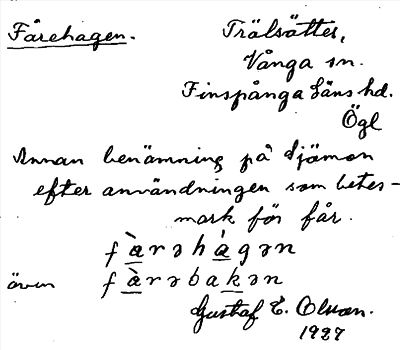 Fårehagen.
Trälsätter,
Vånga sn.
Finspånga Läns hd.
Ögl
Annan benämning på Sjömon
efter användningen som betes-
mark för får.
fàrəhàgən
även fàrəbakən
Gustaf E. Olsson.
1927